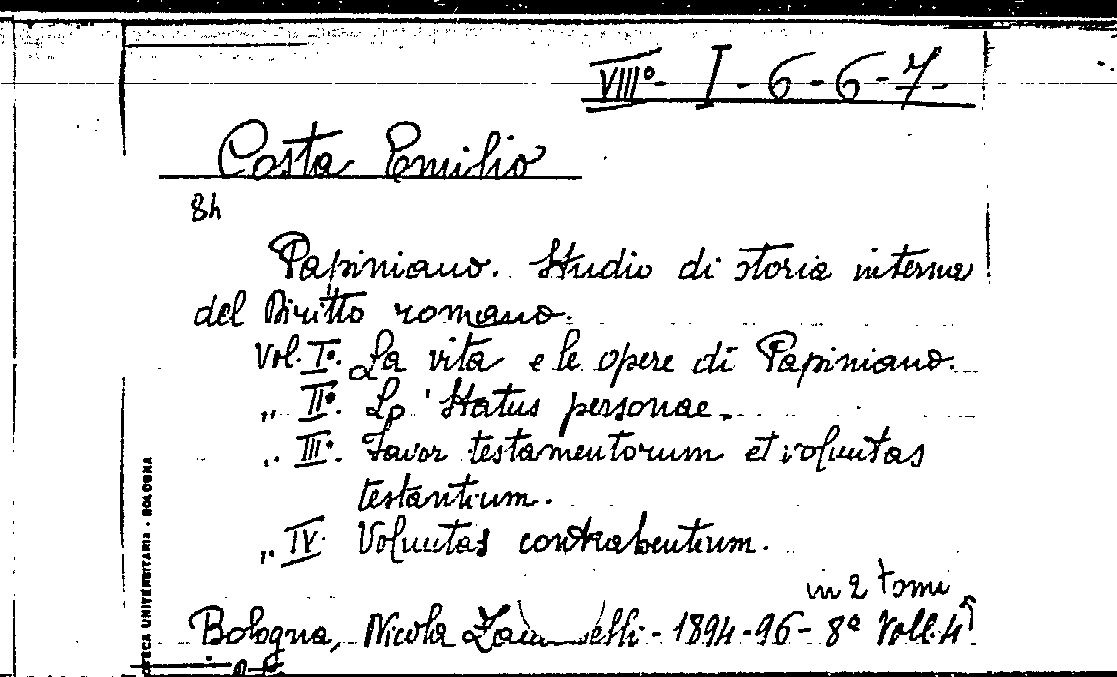 VIII° - I - 6 - 6 - 7 -
Costa Emilio
8h
Papiniano. Studio di storia interna
del Diritto romano.
Vol. I°. La vita e le opere di Papiniano.
„ II°. Lo Status personae.
„ III°. Favor testamentorum et voluntas
testantium.
„ IV. Voluntas contrahentium.
in 2 tomi
Bologna, Nicola Zanichelli - 1894 - 96 - 8° Voll. 4
TECA UNIVERSITARIA - BOLOGNA